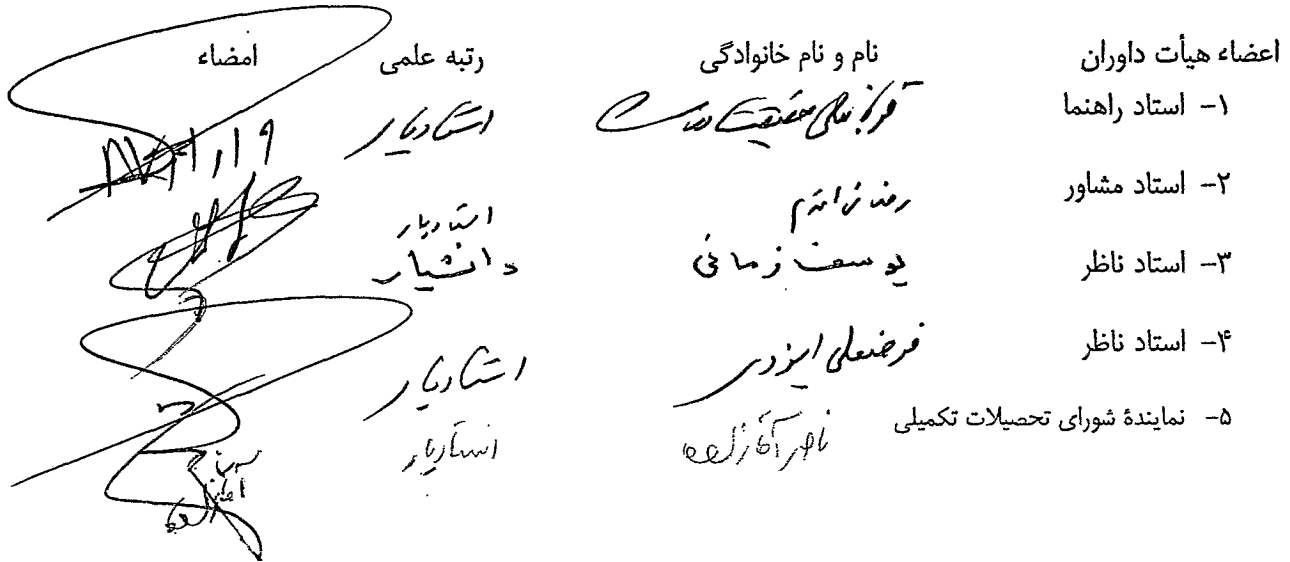 اعضاء هیأت داوران نام و نام خانوادگی رتبه علمی امضاء
۱- استاد راهنما قربانعلی استادیار
۲- استاد مشاور استادیار
۳- استاد ناظر یوسف زمانی دانشیار
۴- استاد ناظر فرضعلی ایزدی استادیار
۵- نمایندهٔ شورای تحصیلات تکمیلی ناصر آقازاده استادیار